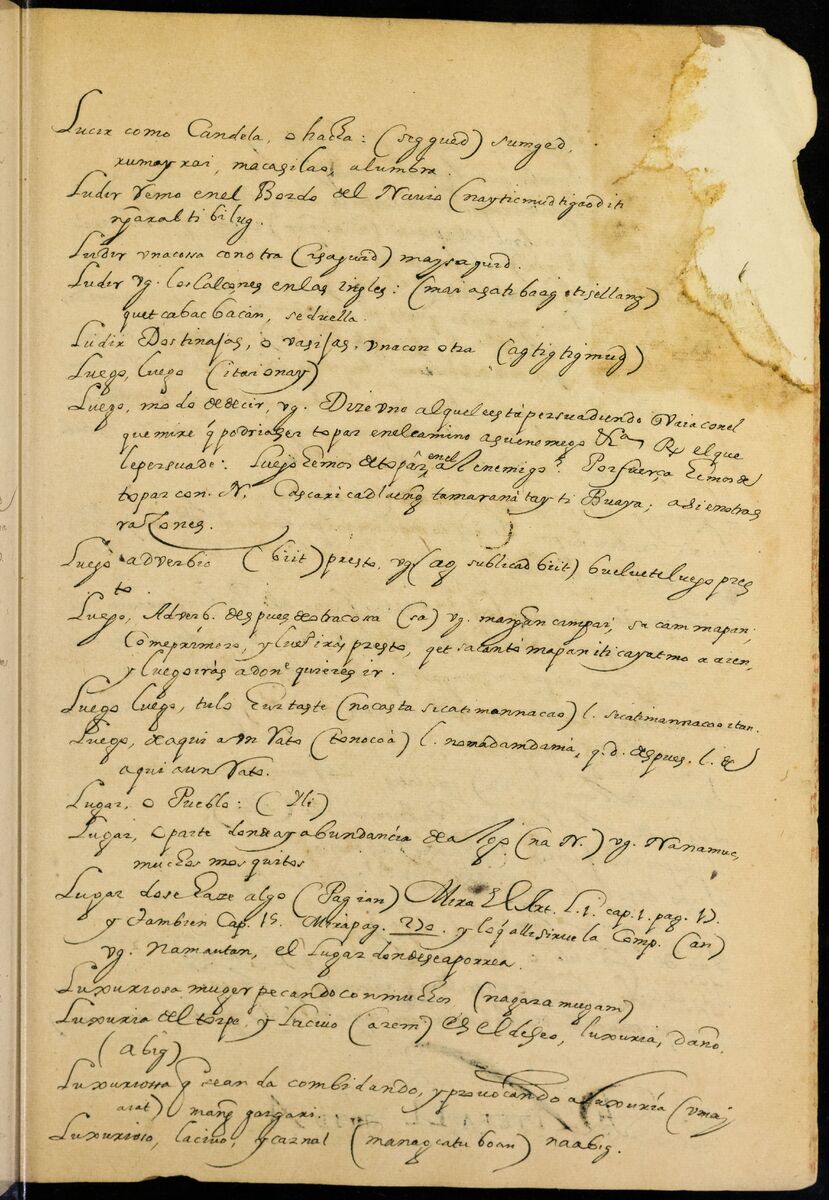 Lucir como Candela, o hacha: (sigguẽd) sumged,
xumayxai, macasilao, alumbra.
Ludir remo en el Bordo del Nauio (nayticmudtigaoditi
Ludir vnacossa conotra (isaguid) maysaguid.
Ludir vg. los Calçones enlas ingles: (mariasatibaag
quet cabacbacàn, seduella.
Ludir Dostinajas, o vasijas, vna con otra (agtigtigmug)
Luego, luego (itaionay)
Luego, modo de decir, vg. Dize vno alquele està persuadiendo Vaia conel
que mire q̃ podria ser topar enel camino asuenemego
lepersuade: Luego hemos de topar enel al enemigo? Porfuerça hemos de
topar con. N. tamaranà tay ti Buaya; asi en otras
razones.
Luego adverbio (biit) presto, vg (ag sublicad biit) buelvete luego pres
to.
Luego, Adverb. despues de otra cossa (sa) vg. mangan campai, sa cam mapan;
Comeprimero, y luego irás presto, qet sa canto mapan iti cayatmo a aren,
y luegoiràs adonde quieres ir.
Luego luego, tu lo hurtaste (nocasta sicatimannacao) l. sicatimannacao itan.
Luego, deaqui a vn rato (tonocoà) l. nomadamdamà, q.d. despues. l. de
aqui aun rato.
Lugar, o Pueblo: (Ili)
Lugar, o parte donde ay abundancia de algo (na N.) vg. Nanamuc,
muchos mosquitos
Lugar do se haze algo (Pagian) Mira El Art. L.1. cap. 1. pag. 17.
y tambien Cap. 15. Mirapag. 270. y loq̃ alli sirue la Comp. (an)
vg. Namautan, el Lugar dondeseaporrea.
Luxuriosa muger pecando con muchos (nagaramugam)
Luxuria del torpe, y Laciuo (arem) es el deseo, luxuria, daño,
(abig)
Luxuriossa q̃ se anda combidando, y prouocando aluxuria (vmay
arat) mang̃ gargari.
Luxurioso, laciuo, y carnal (managcatuboan) naabig.